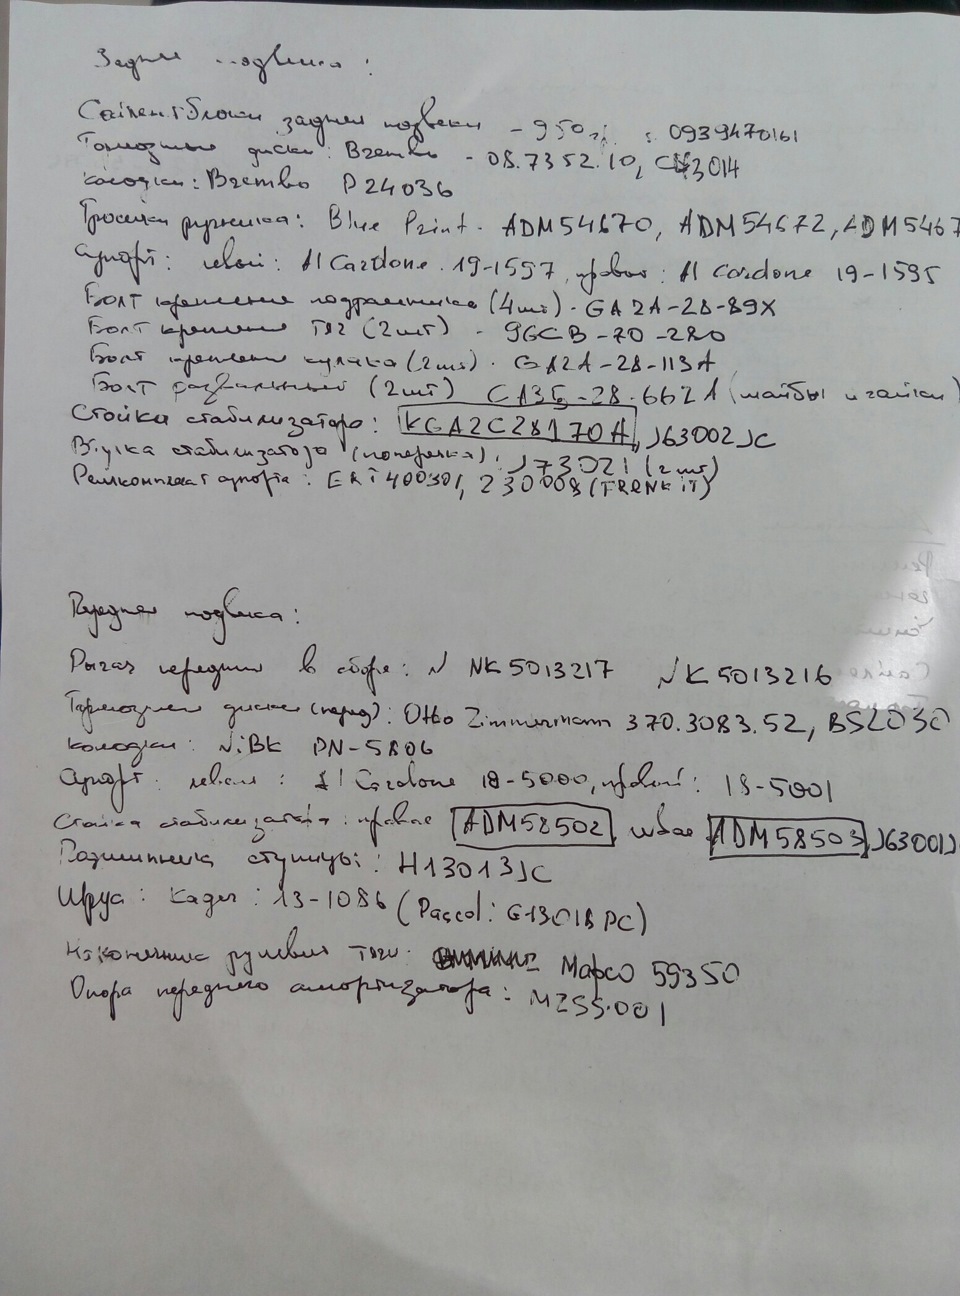 Задняя подвеска:
Сайлентблоки задней подвески - 950 : 0939470161
Тормозные диски: Brembo - 08.7352.10, 3014
колодки: Brembo P24036
Тросики ручника: Blue Print - ADM54670, ADM54672, ADM5467
Суппорт: левый: A1 Cardone 19-1597, правый: A1 Cardone 19-1595
Болт крепления подрамника (4шт) - GA2A-28-89X
Болт крепления тяг (2шт) - 9GCB-70-280
Болт крепления кулака (2шт) - GA2A-28-113A
Болт развальный (2шт) 28-662A (шайбы и гайки)
Стойки стабилизатора: KGA2C28170A, J63002JC
Втулка стабилизатора (поперечка): J73021 (2шт)
Ремкомплект суппорта: ERT400301, 230008 (FRENKIT)
Передняя подвеска:
Рычаг передний в сборе: NK 5013217 NK 5013216
Тормозные диски (перед): Otto Zimmermann 370.3083.52, BS2030
колодки: NiBK PN-5806
Суппорт: левый: A1 Cardone 18-5000, правый: 18-5001
Стойка стабилизатора: правая ADM58502, левая ADM58503, J63001J
Подшипника ступицы: H13013JC
Шрус: Kager: 13-1086 (Pascal: G13018PC)
Наконечника рулевой тяги: Mapco 59350
Опора переднего амортизатора: MZSS-001